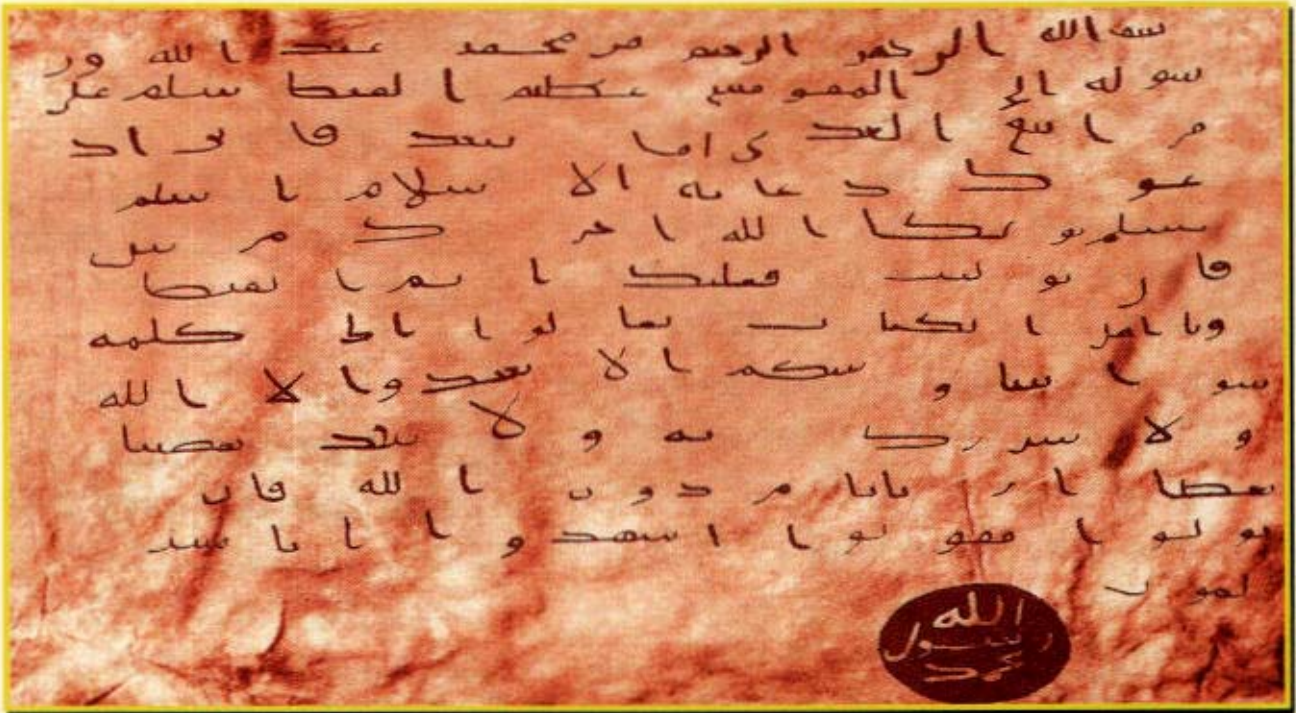 بسم الله الرحمن الرحيم من محمد عبد الله ور
سوله الى المقوقس عظيم القبط سلم على
من اتبع الهدى اما بعد فانى اد
عوك دعاية الاسلام اسلم
تسلم يوتك الله اجرك مرتين
فان توليت فعليك اثم القبط
ويا اهل الكتاب تعالوا الى كلمة
سوا بيننا وبينكم الا نعبدوا الا الله
ولا نشرك به ولا يتخذ بعضنا
بعضا اربابا من دون الله فان
تولوا فقولوا اشهدوا بانا مس
لمون
الله
رسول
محمد